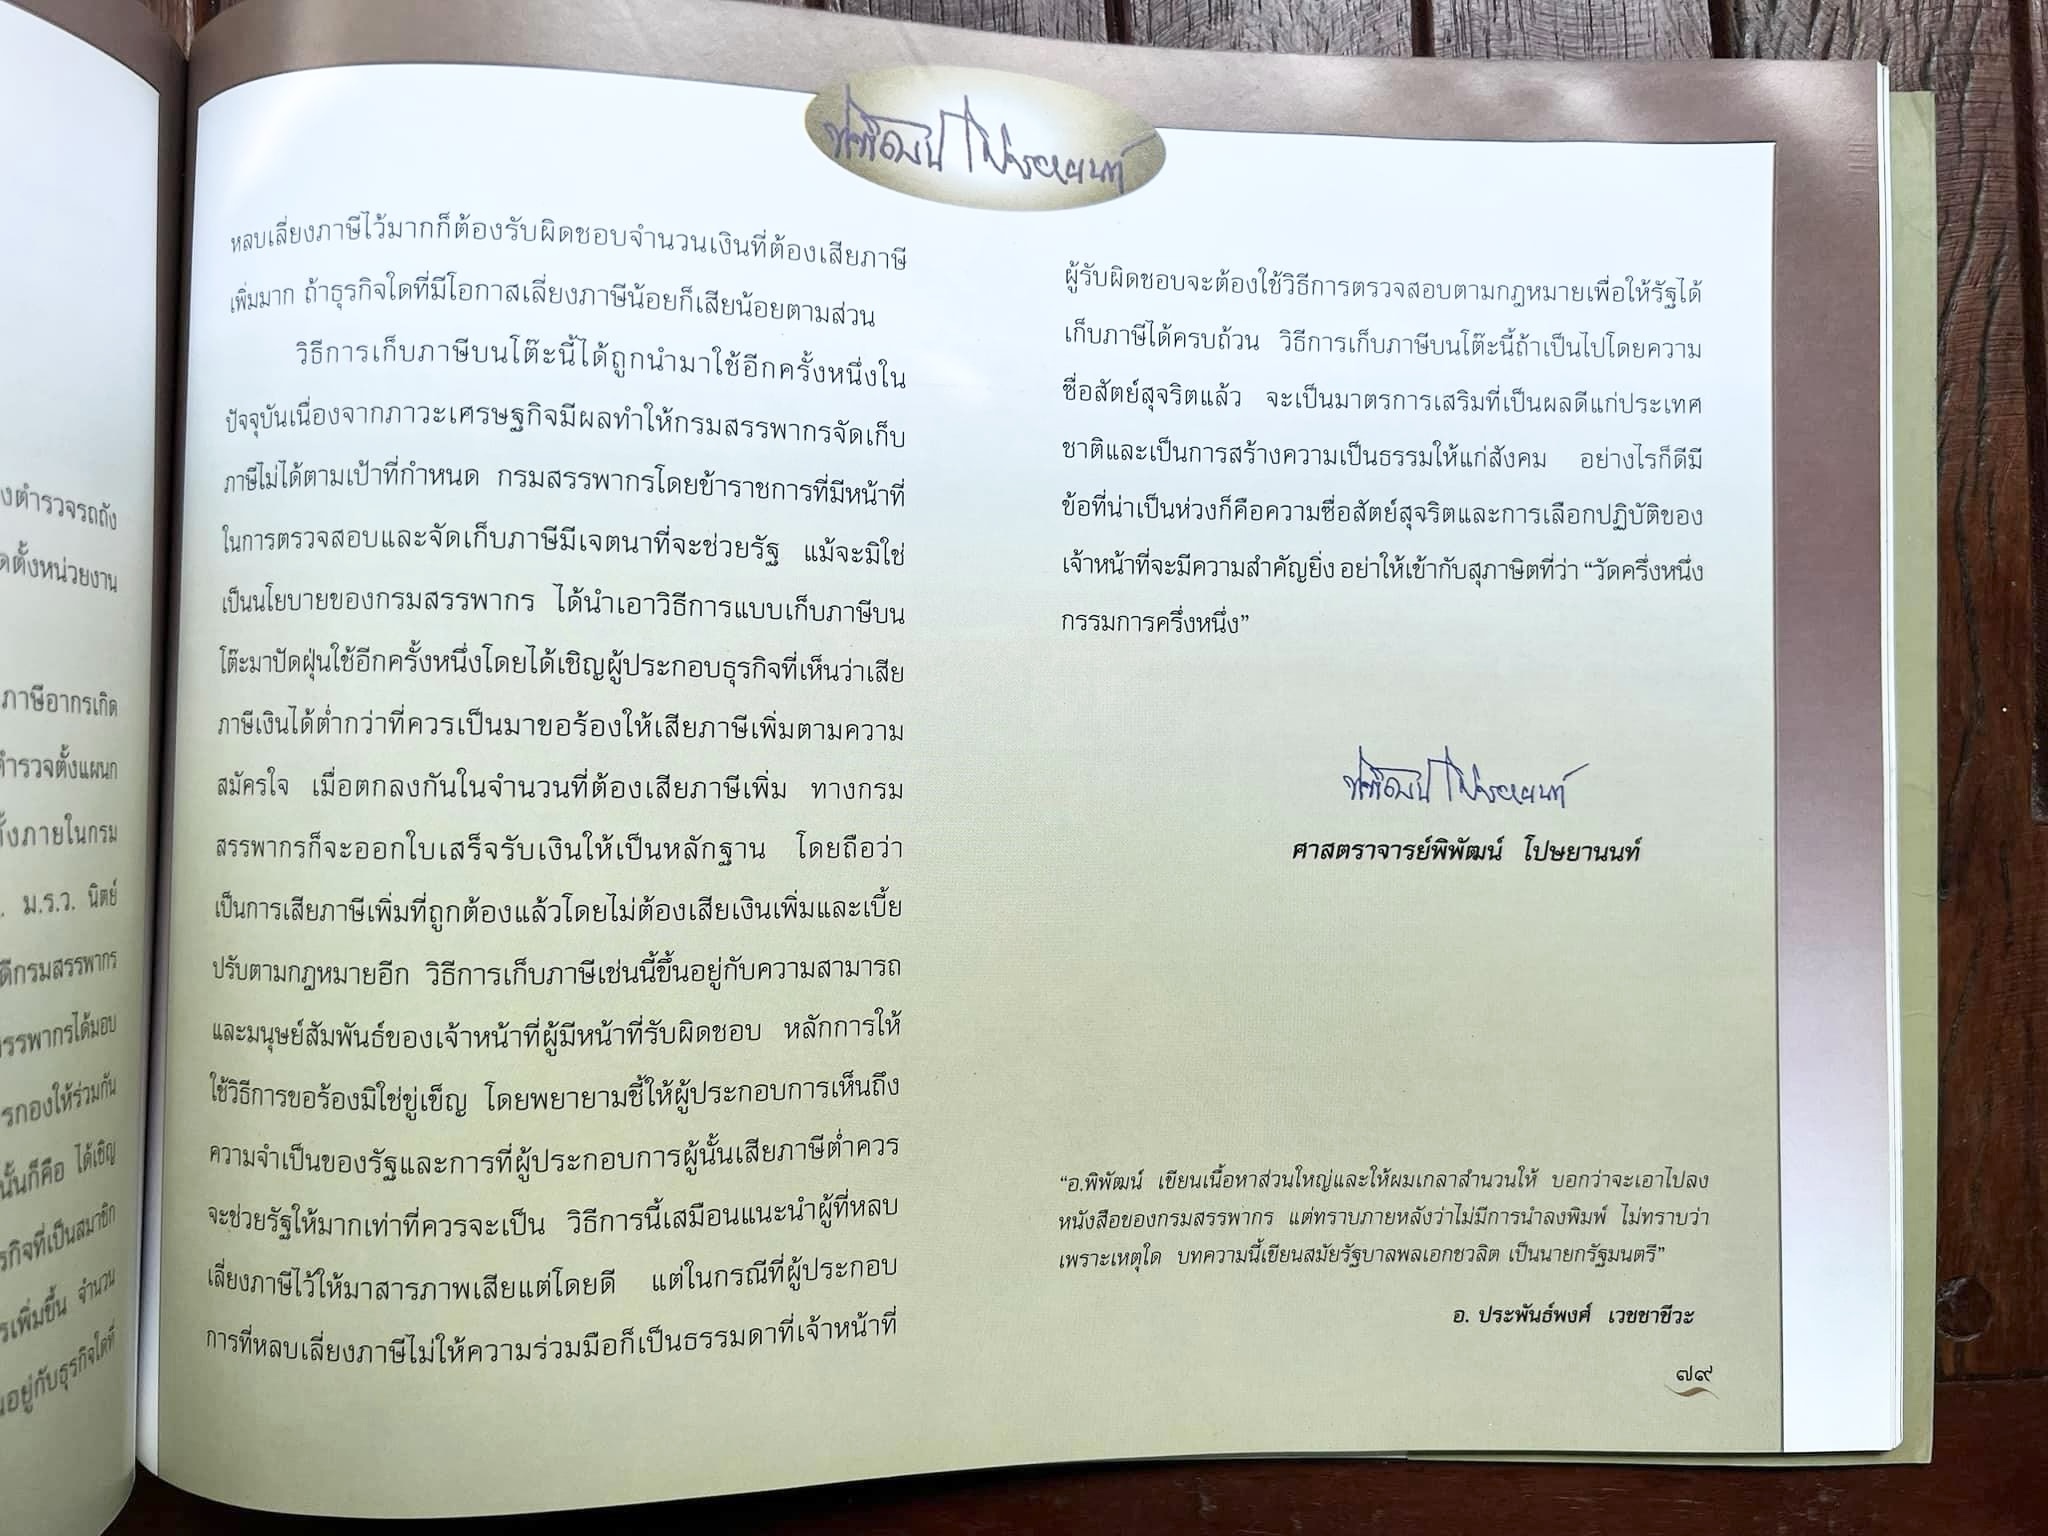 งตำรวจรถถัง
ดตั้งหน่วยงาน
ภาษีอากรเกิด
ตำรวจตั้งแผนก
ั้งภายในกรม
ม.ร.ว. นิตย์
ดีกรมสรรพากร
รรพากรได้มอบ
รกองให้ร่วมกัน
นั้นก็คือ ได้เชิญ
รกิจที่เป็นสมาชิก
รเพิ่มขึ้น จำนวน
นอยู่กับธุรกิจใดที่
พิพัฒน์ โปษยานนท์
หลบเลี่ยงภาษีไว้มากก็ต้องรับผิดชอบจำนวนเงินที่ต้องเสียภาษี
เพิ่มมาก ถ้าธุรกิจใดที่มีโอกาสเลี่ยงภาษีน้อยก็เสียน้อยตามส่วน
วิธีการเก็บภาษีบนโต๊ะนี้ได้ถูกนำมาใช้อีกครั้งหนึ่งใน
ปัจจุบันเนื่องจากภาวะเศรษฐกิจมีผลทำให้กรมสรรพากรจัดเก็บ
ภาษีไม่ได้ตามเป้าที่กำหนด กรมสรรพากรโดยข้าราชการที่มีหน้าที่
ในการตรวจสอบและจัดเก็บภาษีมีเจตนาที่จะช่วยรัฐ แม้จะมิใช่
เป็นนโยบายของกรมสรรพากร ได้นำเอาวิธีการแบบเก็บภาษีบน
โต๊ะมาปัดฝุ่นใช้อีกครั้งหนึ่งโดยได้เชิญผู้ประกอบธุรกิจที่เห็นว่าเสีย
ภาษีเงินได้ต่ำกว่าที่ควรเป็นมาขอร้องให้เสียภาษีเพิ่มตามความ
สมัครใจ เมื่อตกลงกันในจำนวนที่ต้องเสียภาษีเพิ่ม ทางกรม
สรรพากรก็จะออกใบเสร็จรับเงินให้เป็นหลักฐาน โดยถือว่า
เป็นการเสียภาษีเพิ่มที่ถูกต้องแล้วโดยไม่ต้องเสียเงินเพิ่มและเบี้ย
ปรับตามกฎหมายอีก วิธีการเก็บภาษีเช่นนี้ขึ้นอยู่กับความสามารถ
และมนุษย์สัมพันธ์ของเจ้าหน้าที่ผู้มีหน้าที่รับผิดชอบ หลักการให้
ใช้วิธีการขอร้องมิใช่ขู่เข็ญ โดยพยายามชี้ให้ผู้ประกอบการเห็นถึง
ความจำเป็นของรัฐและการที่ผู้ประกอบการผู้นั้นเสียภาษีต่ำควร
จะช่วยรัฐให้มากเท่าที่ควรจะเป็น วิธีการนี้เสมือนแนะนำผู้ที่หลบ
เลี่ยงภาษีไว้ให้มาสารภาพเสียแต่โดยดี แต่ในกรณีที่ผู้ประกอบ
การที่หลบเลี่ยงภาษีไม่ให้ความร่วมมือก็เป็นธรรมดาที่เจ้าหน้าที่
ผู้รับผิดชอบจะต้องใช้วิธีการตรวจสอบตามกฎหมายเพื่อให้รัฐได้
เก็บภาษีได้ครบถ้วน วิธีการเก็บภาษีบนโต๊ะนี้ถ้าเป็นไปโดยความ
ซื่อสัตย์สุจริตแล้ว จะเป็นมาตรการเสริมที่เป็นผลดีแก่ประเทศ
ชาติและเป็นการสร้างความเป็นธรรมให้แก่สังคม อย่างไรก็ดีมี
ข้อที่น่าเป็นห่วงก็คือความซื่อสัตย์สุจริตและการเลือกปฏิบัติของ
เจ้าหน้าที่จะมีความสำคัญยิ่ง อย่าให้เข้ากับสุภาษิตที่ว่า “วัดครึ่งหนึ่ง
กรรมการครึ่งหนึ่ง”
พิพัฒน์ โปษยานนท์
ศาสตราจารย์พิพัฒน์ โปษยานนท์
“อ.พิพัฒน์ เขียนเนื้อหาส่วนใหญ่และให้ผมเกลาสำนวนให้ บอกว่าจะเอาไปลง
หนังสือของกรมสรรพากร แต่ทราบภายหลังว่าไม่มีการนำลงพิมพ์ ไม่ทราบว่า
เพราะเหตุใด บทความนี้เขียนสมัยรัฐบาลพลเอกชวลิต เป็นนายกรัฐมนตรี”
อ. ประพันธ์พงศ์ เวชชาชีวะ
๗๙